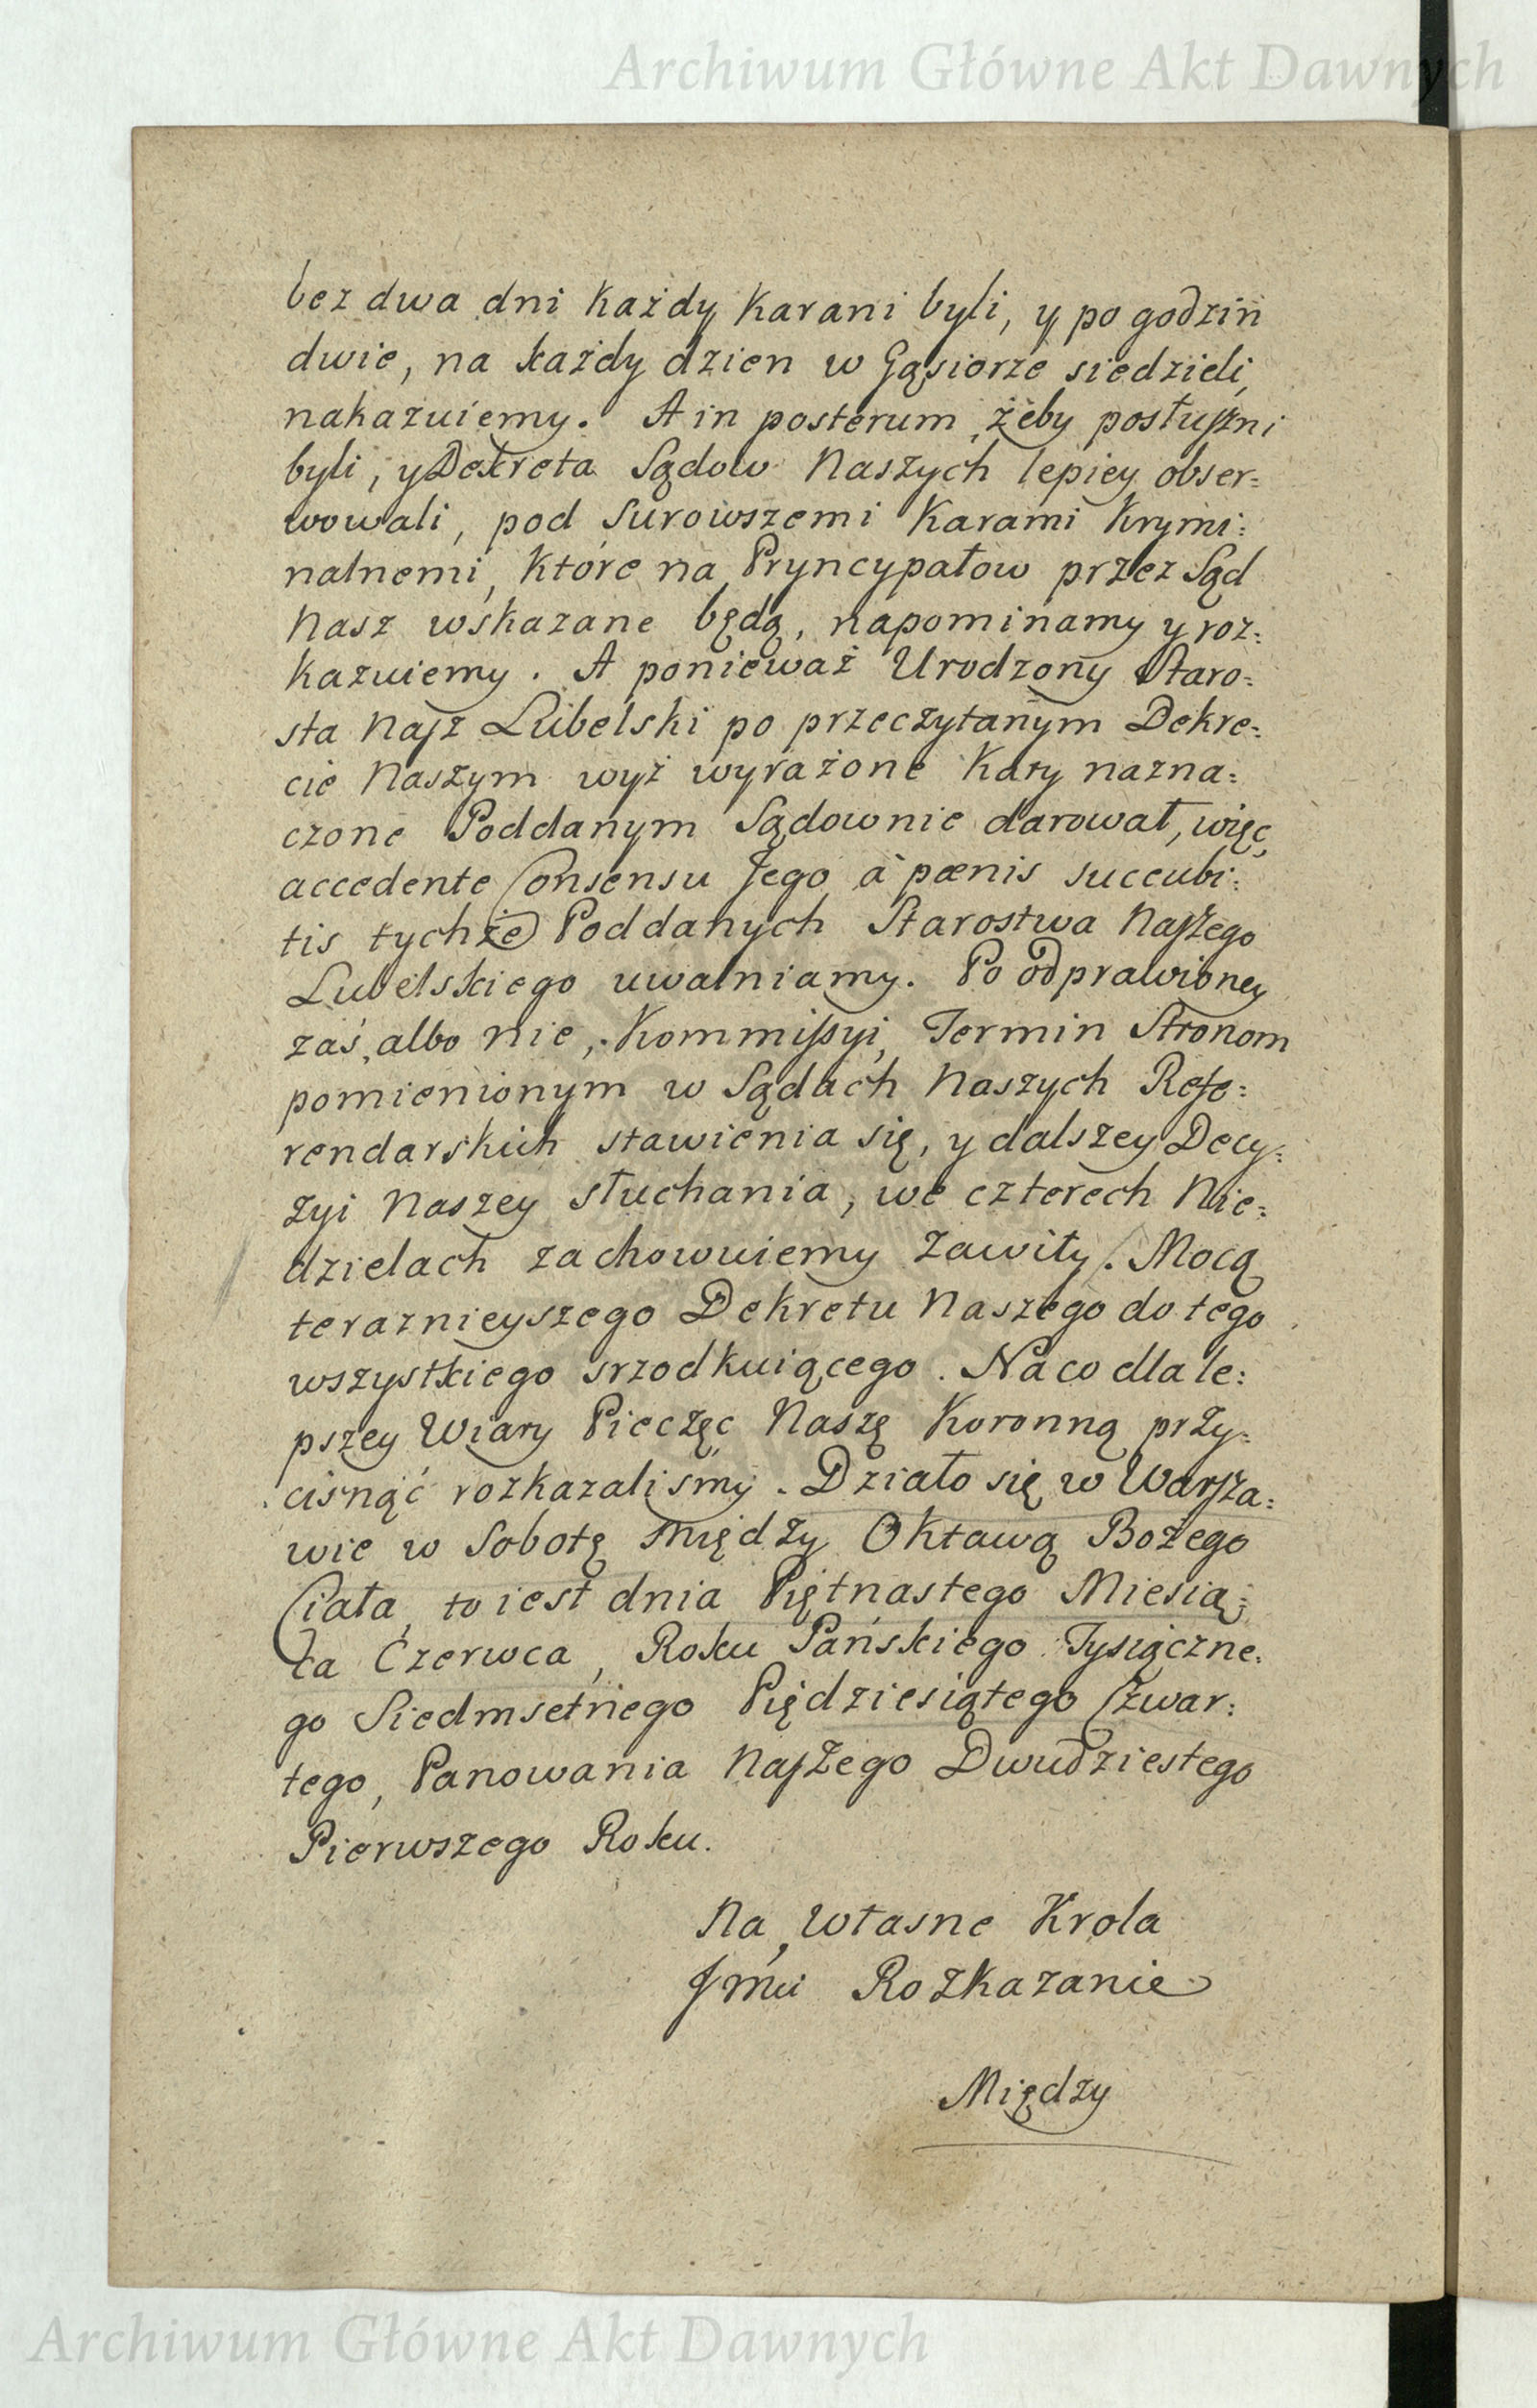 Archiwum Główne Akt Dawnych
bez dwa dni każdy karani byli, y po godzin
dwie, na każdy dzien w Gąsiorze siedzieli,
nakazuiemy. A in posterum, żeby posłuszni
byli, y Dekreta Sądow Naszych lepiey obser=
wowali, pod surowszemi karami krymi=
nalnemi, które na Pryncypałow przez Sąd
Nasz wskazane będą, napominamy y roz=
kazuiemy. A ponieważ Urodzony Staro=
sta Nasz Lubelski po przeczytanym Dekre=
cie Naszym wyż wyrażone kary nazna=
czone Poddanym Sądownie darował, więc
accedente Consensu Jego à pœnis succubi=
tis tychże Poddanych Starostwa Naszego
Lubelskiego uwalniamy. Po odprawioney
zaś, albo nie, Kommissyi, Termin Stronom
pomienionym w Sądach Naszych Refe=
rendarskich stawienia się, y dalszey Decy=
zyi Naszey słuchania, we czterech Nie=
dzielach zachowuiemy zawity. Mocą
teraznieyszego Dekretu Naszego do tego
wszystkiego srzodkuiącego. Na co dla le=
pszey Wiary Pieczęc Naszę Koronną przy=
cisnąć rozkazalismy. Działo się w Warsza=
wie w Sobotę między Oktawą Bożego
Ciała, to iest dnia Piętnastego Miesią=
ca Czerwca, Roku Pańskiego Tysiączne=
go Siedmsetnego Piędziesiątego Czwar=
tego, Panowania Naszego Dwudziestego
Pierwszego Roku.
Na własne Krola
Jmći Rozkazanie
Między
Archiwum Główne Akt Dawnych